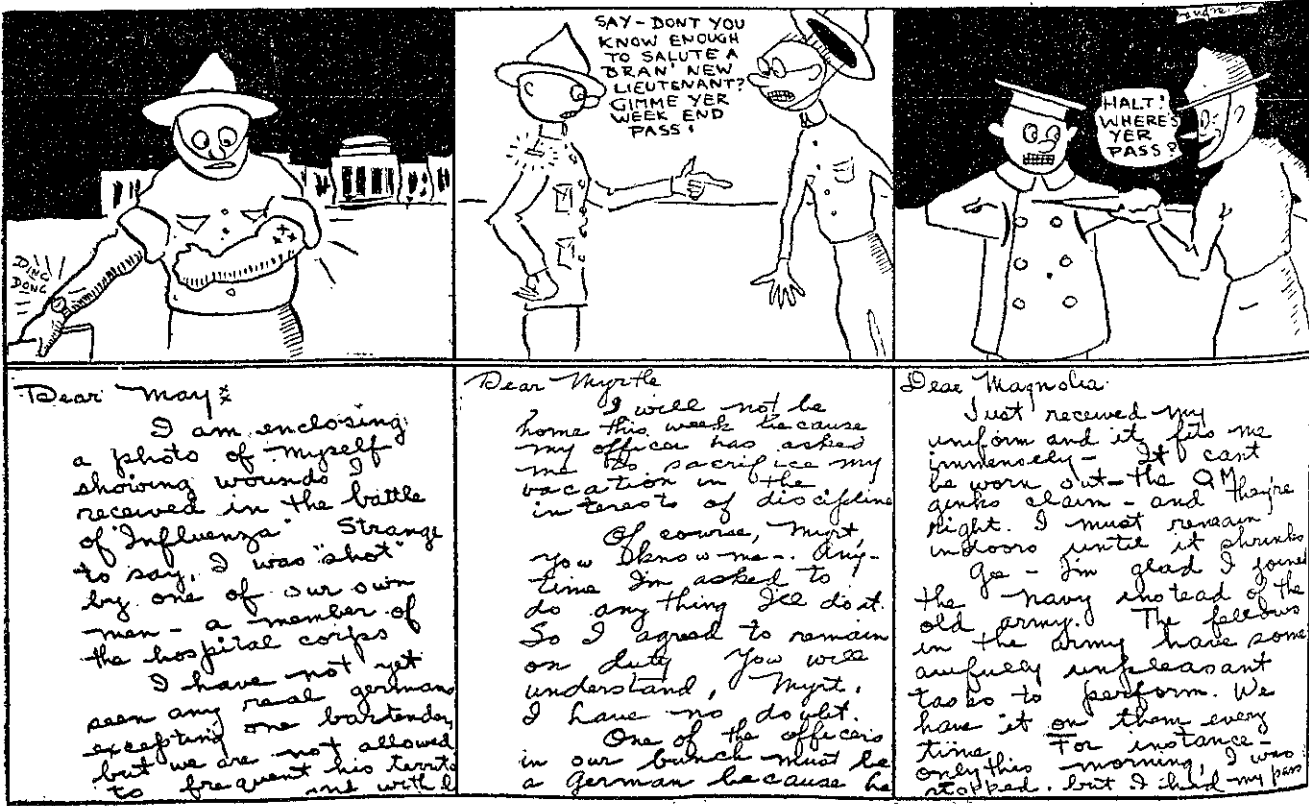 DING
DONG
SAY - DONT YOU
KNOW ENOUGH
TO SALUTE A
BRAN' NEW
LIEUTENANT?
GIMME YER
WEEK END
PASS!
HALT!
WHERE'S
YER
PASS?
Dear May:
I am enclosing
a photo of myself
showing wounds I
received in the battle
of "Influenza" Strange
to say, I was "shot"
by one of our own
men - a member of
the hospital corps
I have not yet
seen any real germans
excepting one bartender,
but we are not allowed
to frequent his
Dear Myrtle
I will not be
home this week because
my officer has asked
me to sacrifice my
vacation in the
interests of discipline
Of course, Myrt,
you know me - any-
time I'm asked to
do any thing I'll do it.
So I agreed to remain
on duty You will
understand, Myrt,
I have no doubt.
One of the officers
in our bunch must be
a German because he
Dear Magnolia
Just received my
uniform and it fits me
immensely - It cant
be worn out - the QM
ginks claim - and they're
right. I must remain
indoors until it shrinks
Gee - I'm glad I joined
the navy instead of the
old army. The fellows
in the army have some
awfully unpleasant
tasks to perform. We
have it on them every
time For instance -
only this morning, I was
stopped, but I had my pass